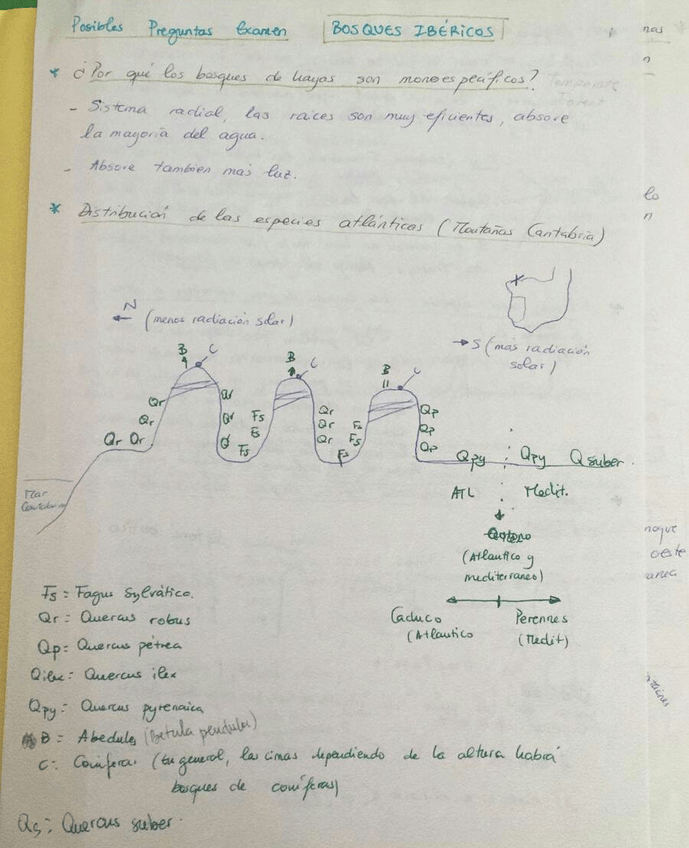 Posibles Preguntas Examen BOSQUES IBÉRICOS
* ¿Por qué los bosques de hayas son monoespecíficos?
- Sistema radial, las raíces son muy eficientes, absove
la mayoría del agua.
- Absove tambien más luz.
* Distribución de las especies atlánticas (Montañas Cantabria)
N
← (menos radiación solar)
→ S (más radiación
solar)
B C
B C
B C
Qr
Qr
Qr Qr
Qr
Qr
Q
Fs
Fs
Fs
Qr
Qr
Qr
Fs
Fs
Fs
Qp
Qp
Qp
Qpy Qpy Q suber
Mar
ATL Medit.
(Atlantico y
mediterraneo)
Caduco Perennes
(Atlantico (Medit)
Fs = Fagus sylvática.
Qr = Quercus robus
Qp = Quercus pétrea
Qilex = Quercus ilex
Qpy = Quercus pyrenaica
B = Abedules (Betula pendula)
C = Coníferas (En general, las cimas dependiendo de la altura habrá
bosques de coníferas)
Qs = Quercus suber.
nas
n
lo
n
oeste